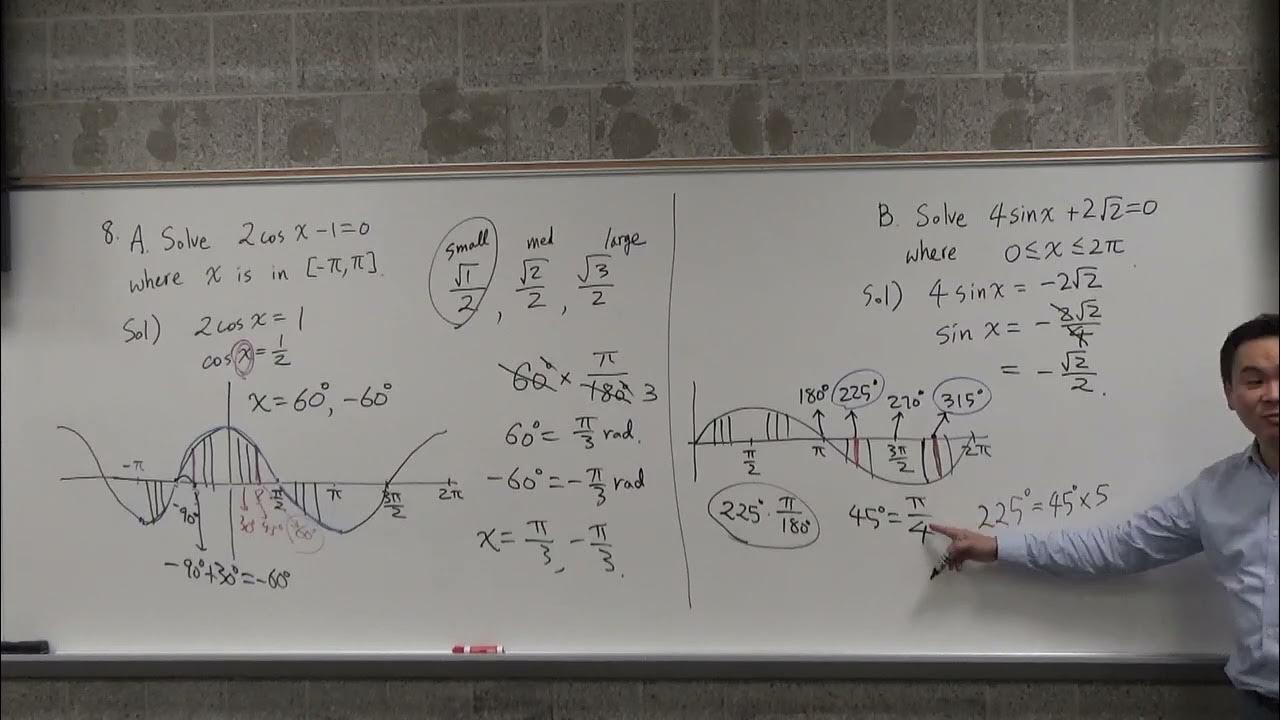 8. A. Solve 2cos x - 1 = 0
where x is in [-π, π].
Sol) 2cos x = 1
cos x = 1/2
x = 60°, -60°
-π π/2 π 3π/2 2π
-90° 30° 45° 60°
-90° + 30° = -60°
small med large
√1/2 , √2/2 , √3/2
60° × π/180° 3
60° = π/3 rad.
-60° = -π/3 rad
x = π/3, -π/3.
B. Solve 4 sin x + 2√2 = 0
where 0 ≤ x ≤ 2π
Sol) 4 sin x = -2√2
sin x = - 8√2/4
= - √2/2.
180° 225° 270° 315°
π/2 π 3π/2 2π
225° · π/180° 45° = π/4 225° = 45° × 5